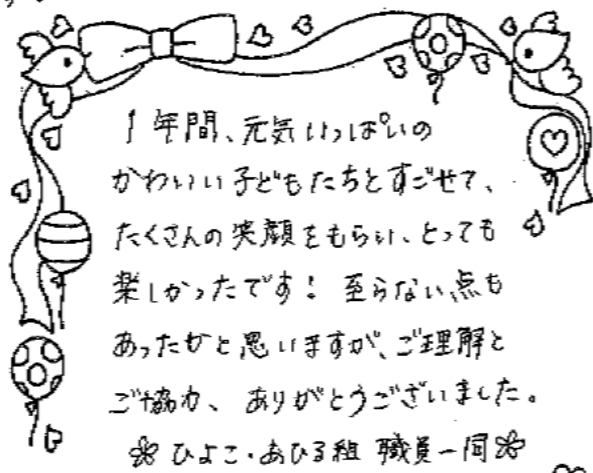 1年間、元気いっぱいの
かわいい子どもたちとすごせて、
たくさんの笑顔をもらい、とっても
楽しかったです! 至らない点も
あったかと思いますが、ご理解と
ご協力、ありがとうございました。
ひよこ・あひる組 職員一同